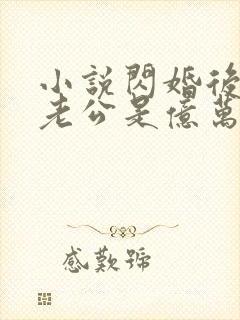 小說閃婚後
老公是億萬
感歎號